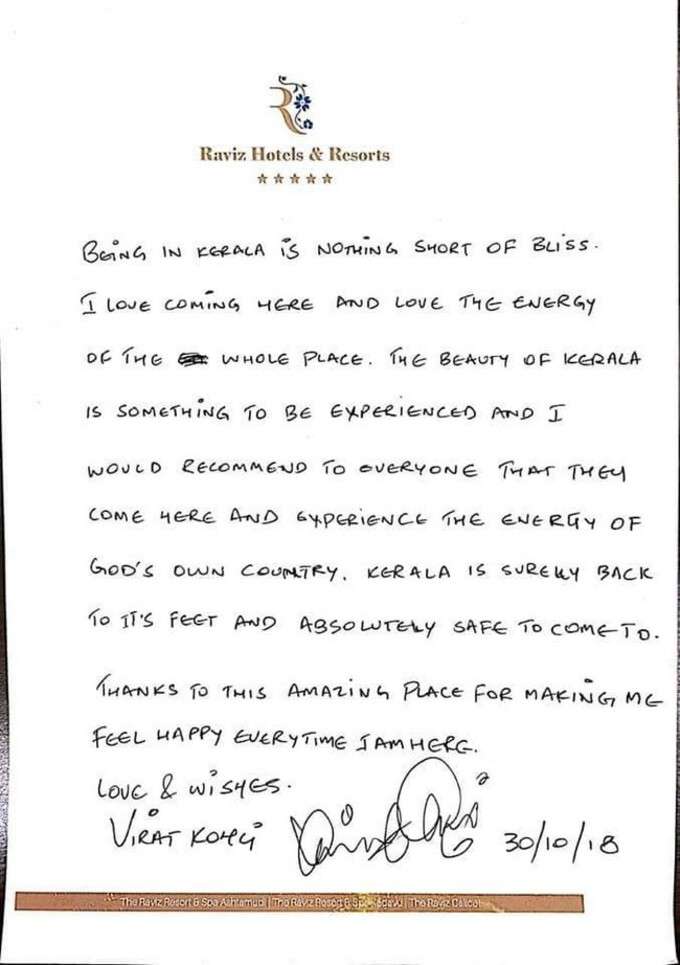 Raviz Hotels & Resorts
BEING IN KERALA IS NOTHING SHORT OF BLISS.
I LOVE COMING HERE AND LOVE THE ENERGY
OF THE WHOLE PLACE. THE BEAUTY OF KERALA
IS SOMETHING TO BE EXPERIENCED AND I
WOULD RECOMMEND TO EVERYONE THAT THEY
COME HERE AND EXPERIENCE THE ENERGY OF
GOD'S OWN COUNTRY. KERALA IS SURELY BACK
TO IT'S FEET AND ABSOLUTELY SAFE TO COME TO.
THANKS TO THIS AMAZING PLACE FOR MAKING ME
FEEL HAPPY EVERYTIME I AM HERE.
LOVE & WISHES.
VIRAT KOHLI 30/10/18
The Raviz Resort & Spa Ashtamudi | The Raviz Resort & Spa Kadavu | The Raviz Calicut